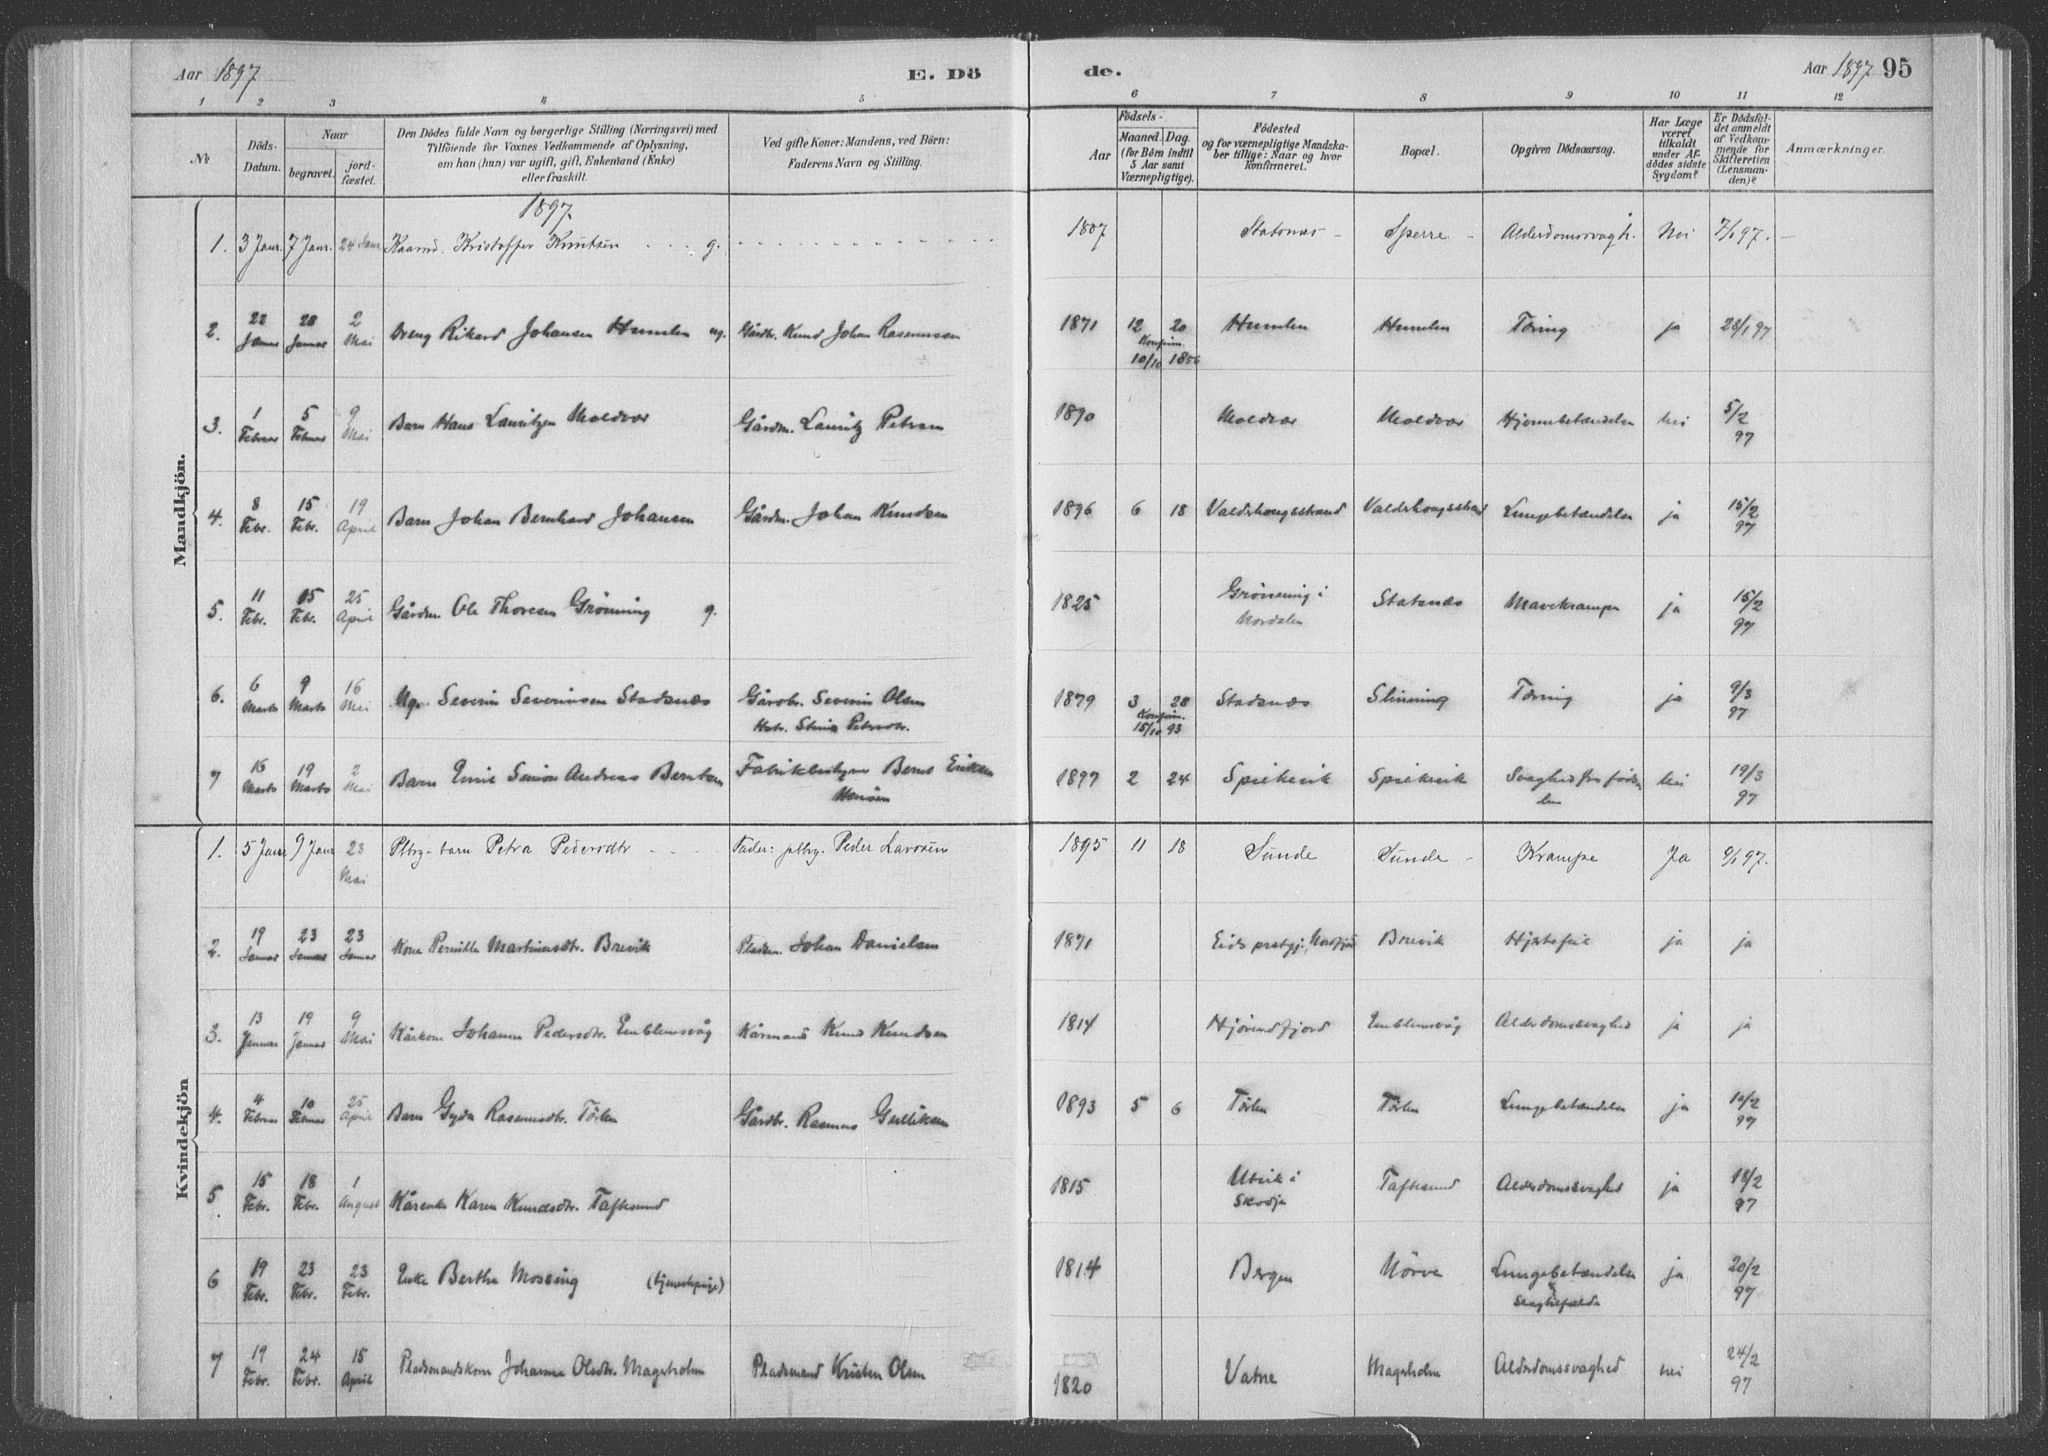 Aar 1897
E. Dö
de.
Aar 1897 95
1 2 3 4 5 6 7 8 9 10 11 12
No
Döds-Datum.
Naar
begravet.
jord-fæstet.
Den Dödes fulde Navn og borgerlige Stilling (Næringsvei) med
Tilföiende for Voxnes Vedkommende af Oplysning,
om han (hun) var ugift, gift, Enkemand (Enke)
eller fraskilt.
Ved gifte Koner: Mandens, ved Börn:
Faderens Navn og Stilling.
Födsels-
Aar
Maaned. Dag.
(for Börn indtil
5 Aar samt
Værnepligtige).
Födested
og for værnepligtige Mandska-
ber tillige: Naar og hvor
konfirmeret.
Bopæl.
Opgiven Dödsaarsag.
Har Læge
været
tilkaldt
under Af-
dödes sidste
Sygdom?
Er Dödsfal-
det anmeldt
af Vedkom-
mende for
Skifteretten
(Lensman-
den)?
Anmærkninger.
Mandkjön.
1897.
1. 3 Janr. 7 Janr. 24 Janr. Kaarmd. Kristoffer Knutsen g. 1807 Statsnes Sperre Alderdomssvagh. Nei 7/1 97.
2. 22 Januar 28 Januar 2 Mai Dreng Rikard Johansen Humlen ug. Gårdbr. Knud Johan Rasmussen 1871 12 20 Humlen Humlen Tæring ja 28/1 97
Konfirm.
10/10 1886
3. 1 Februar 5 Februar 9 Mai Barn Hans Lauritzen Moldvær Gårdm. Lauritz Petersen 1890 Moldvær Moldvær Hjernebetændelse nei 5/2 97
4. 8 Febr. 15 Febr. 19 April Barn Johan Bernhard Johansen Gårdm. Johan Knudsen 1896 6 18 Valderhougsstrand Valderhougsstrand Lungebetændelse ja 15/2 97
5. 11 Febr. 15 Febr. 25 April Gårdm. Ole Thoresen Grönning g. 1825 Grönning i Nordalen Statsnæs Mavekrampe ja 15/2 97
6. 6 Marts 9 Marts 16 Mai Ugr. Severin Severinsen Stadsnæs Gårdbr. Severin Olsen
Petersdtr. 1879 3 28 Stadsnæs Slinning Tæring ja 9/3 97
Konfirm.
15/10 93
7 16 Marts 19 Marts 2 Mai Barn Emil Simon Andreas Berntsen Fabrikbestyrer Bernt Eriksen 1897 2 24 Spjelkvik Spjelkvik Svaghed fra födselen nei 19/3 97
Kvindekjön
1. 5 Janr. 9 Janr 23 Mai barn Petra Pedersdtr Fader: Peder Larsen 1895 11 18 Sunde Sunde Krampe Ja 9/1 97.
2. 19 Januar 23 Januar 23 Januar Kone Pernille Martinusdtr. Brevik Pladsm. Johan Danielsen 1871 Eids prstgj., Nordfjord Brevik Hjertefeil ja ja
3. 13 Januar 19 Januar 9 Mai Kårkone Johanne Pedersdtr. Emblemsvåg Kårmand Knud Knudsen 1814 Hjörundfjord Emblemsvåg Alderdomssvaghed ja ja
4. 4 Februar 10 Februar 25 April Barn Gyda Rasmusdtr. Törlen Gårdbr. Rasmus Gulliksen 1893 5 6 Törlen Törlen Lungebetændelse ja 10/2 97
5 15 Febr. 18 Febr. 1 August Kårenke Karen Knudsdtr. Tafksund 1815 Utvik i Skodje Tafksund Alderdomssvaghed ja 18/2 97
6 19 Febr. 23 Febr. 23 Febr. Enke Berthe Mossing (tjenestepige) 1814 Bergen Nörve Lungebetændelse
Slagtilfælde ja 20/2 97
7 19 Febr. 24 Febr. 15 April Pladsmandskone Johanne Olsdtr. Magerholm Pladsmand Kristen Olsen 1820 Vatne Magerholm Alderdomssvaghed nei 24/2 97